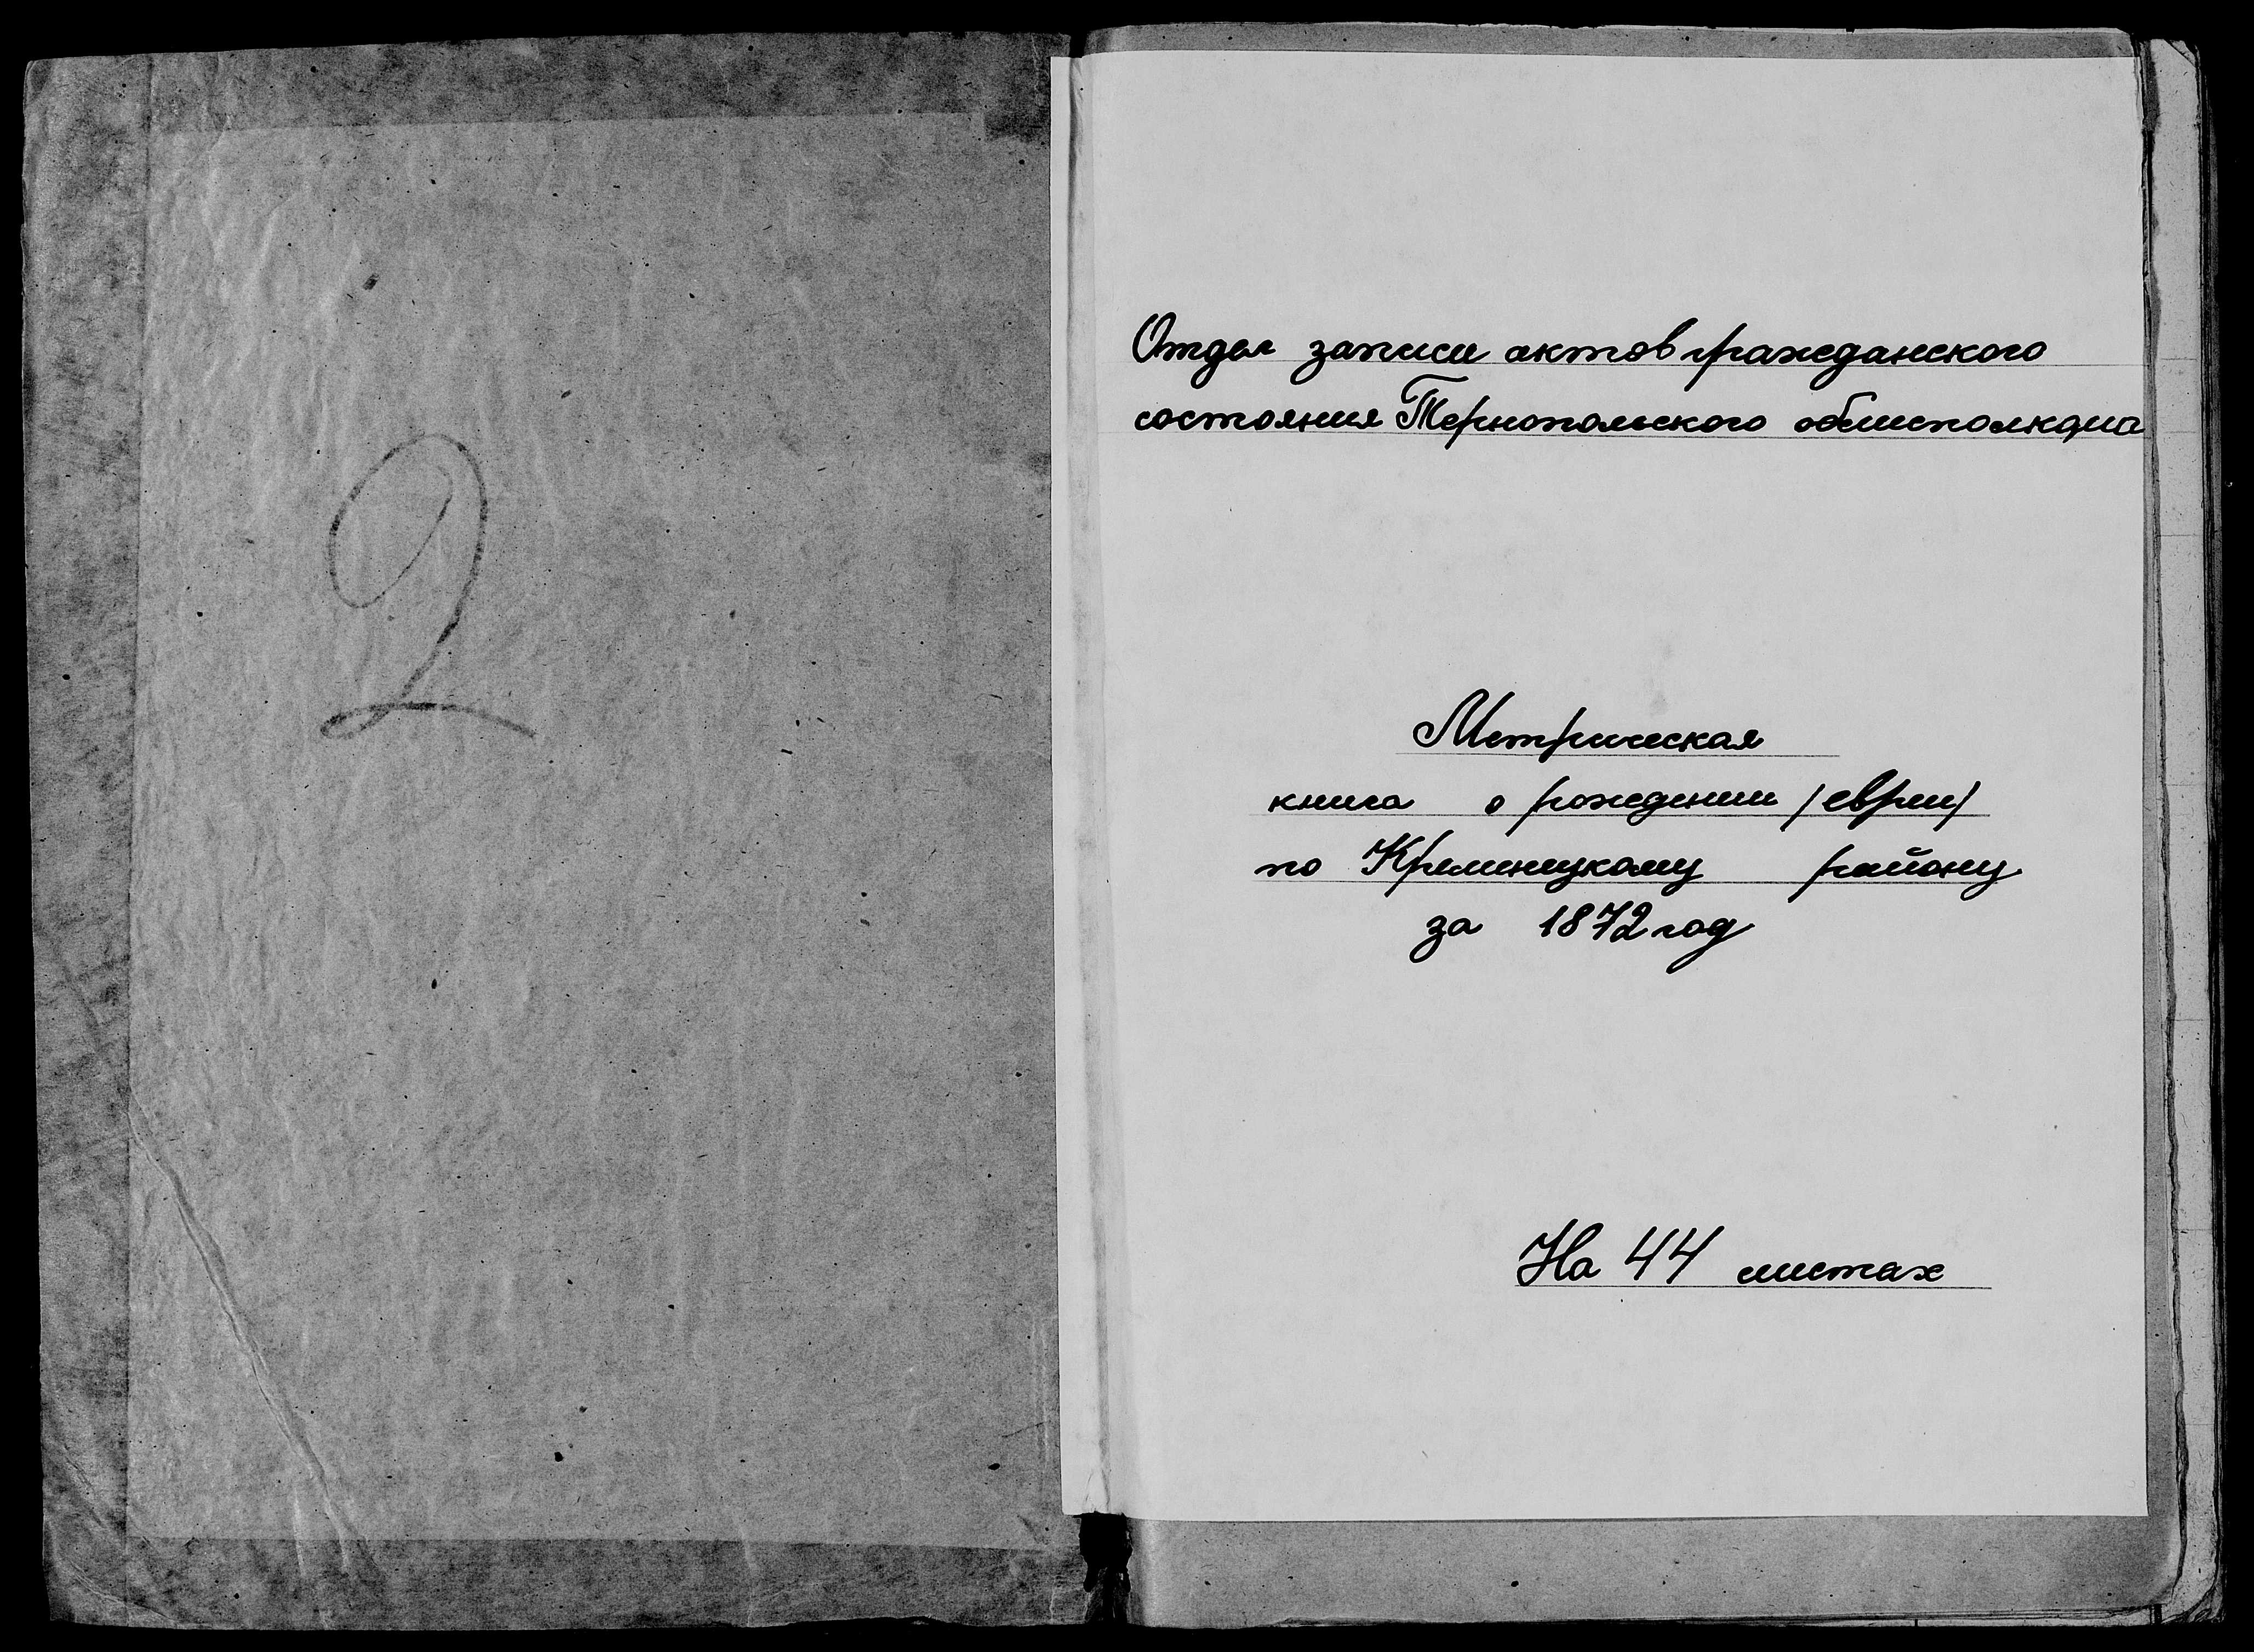 2
Отдел записи актов гражданского
состояния Тернопольского облисполкома
Метрическая
книга о рождении /евреи/
по Кременецкому району
за 1872 год
На 44 листах